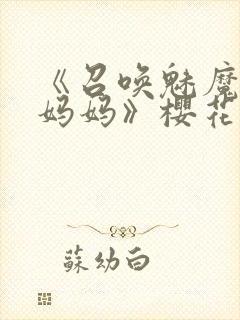 《召唤魅魔
妈妈》樱花
蘇幼白